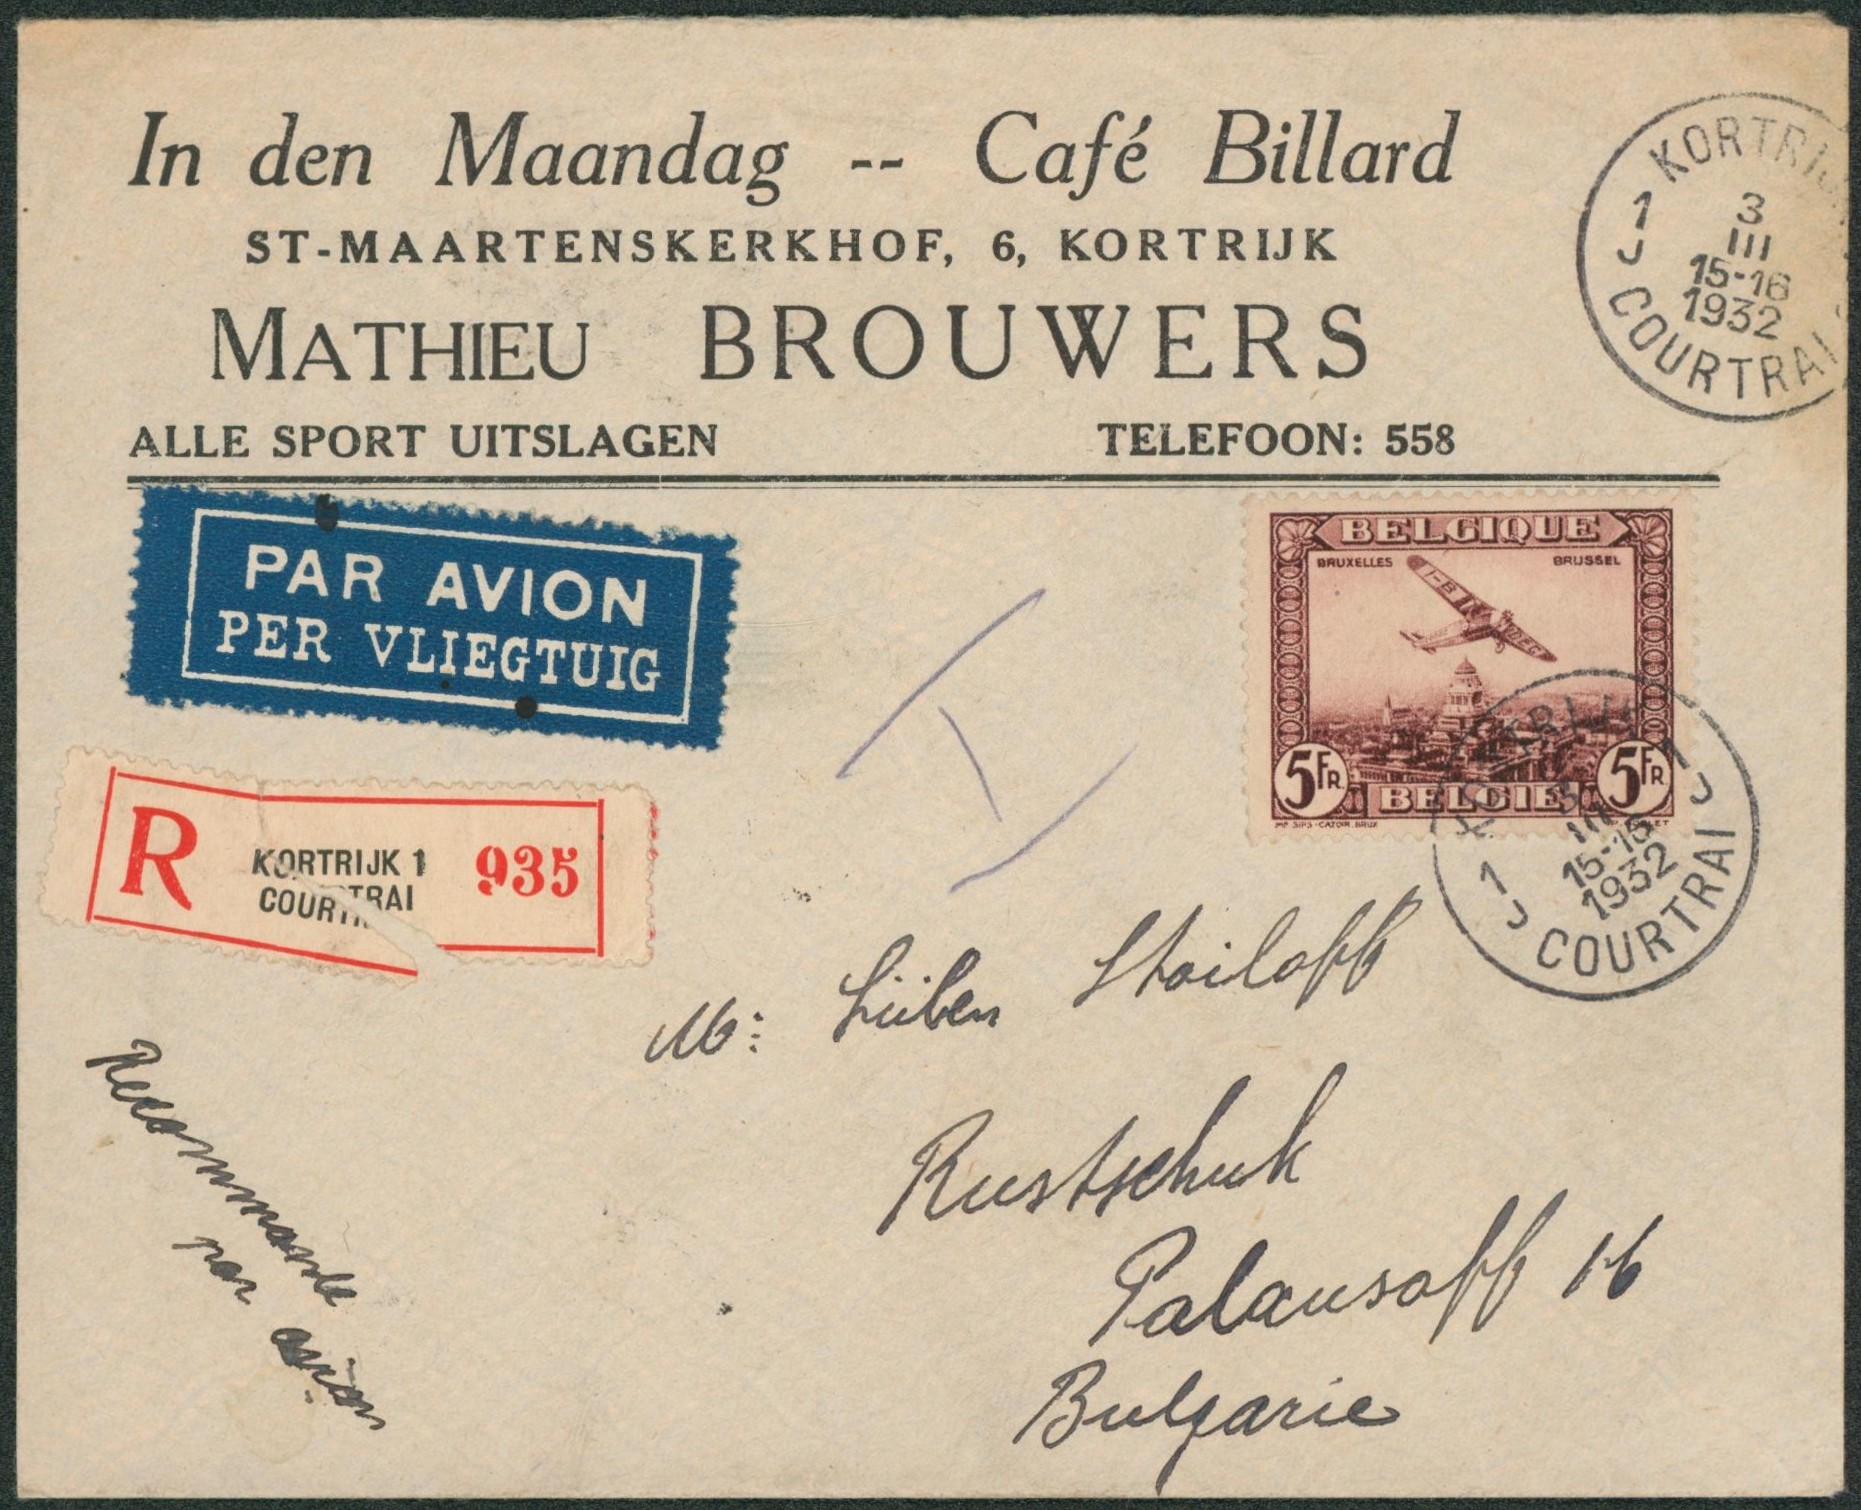 In den Maandag -- Café Billard
ST-MAARTENSKERKHOF, 6, KORTRIJK
MATHIEU BROUWERS
ALLE SPORT UITSLAGEN TELEFOON: 558
KORTRIJK
1 3
J III
15-16
1932
COURTRAI
PAR AVION
PER VLIEGTUIG
BELGIQUE
BRUXELLES BRUSSEL
5 FR 5 FR
BELGIE
IMP SIPS-CATOIR. BRUX
KORTRIJK
3
III
1 15-16
J 1932
1 J
COURTRAI
R KORTRIJK 1 935
COURTRAI
Mr: Lüben Stoiloff
Rustschuk
Palausoff 16
Bulgarie
Recommande
par avion